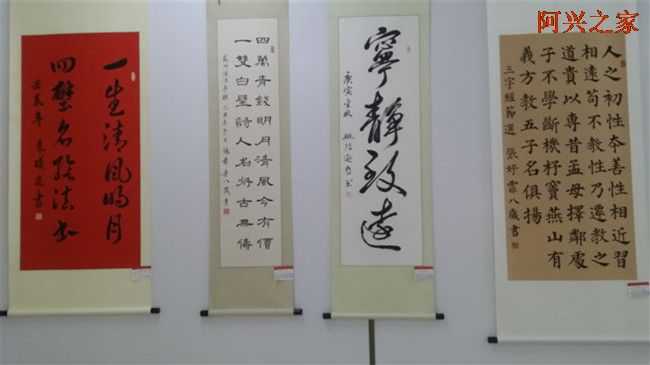 阿兴之家
一生清风明月
四壁名绘法书
四萬青錢明月清風今有價
一雙白璧詩人名將古無儔
寧靜致遠
人之初性本善性相近習
相遠苟不教性乃遷教之
道貴以專昔孟母擇鄰處
子不學斷機杼竇燕山有
義方教五子名俱揚
三字經節選 張妤 八歲書